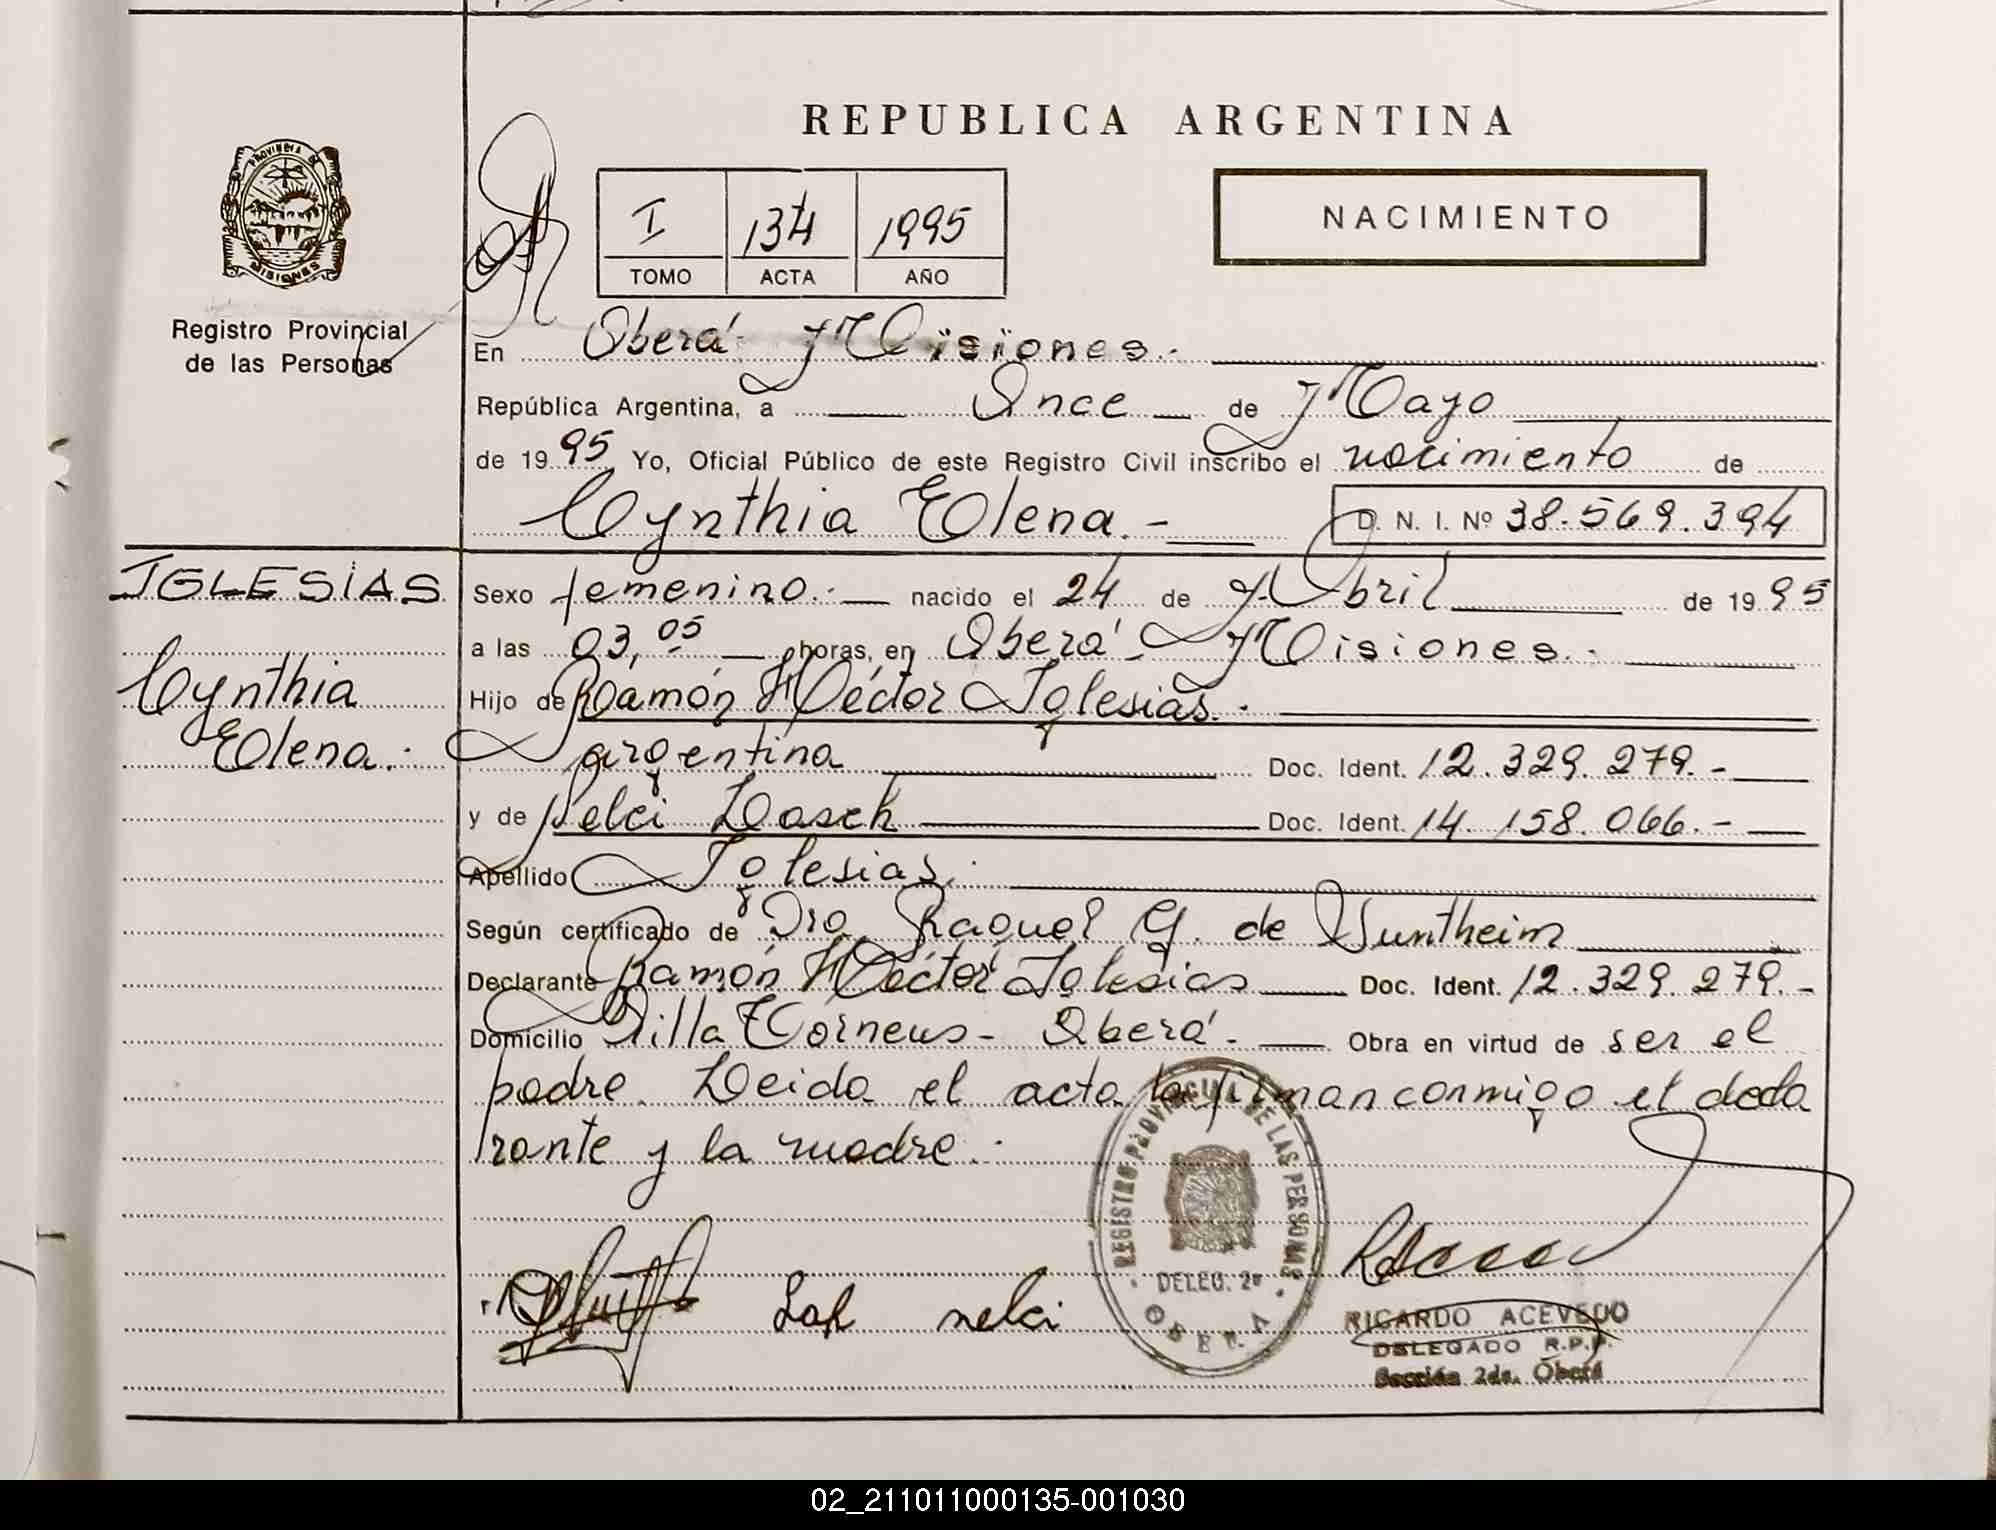 REPUBLICA ARGENTINA
PROVINCIA DE
MISIONES
Registro Provincial
de las Personas
I 1374 1995
TOMO ACTA AÑO
NACIMIENTO
En Oberá Misiones.-
República Argentina, a Once de Mayo
de 1995 Yo, Oficial Público de este Registro Civil inscribo el nacimiento de
Cynthia Elena.-
D. N. I. Nº 38.569.394
IGLESIAS
Cynthia
Elena.
Sexo femenino.- nacido el 24 de Abril de 1995
a las 03,05 horas, en Oberá - Misiones.-
Hijo de Ramón Héctor Iglesias.-
argentina Doc. Ident. 12.329.279.-
y de Nelci Lasch Doc. Ident. 14.158.066.-
Apellido Iglesias.
Según certificado de Dra. Raquel G. de Suntheim
Declarante Ramón Héctor Iglesias Doc. Ident. 12.329.279.-
Domicilio Villa Torneus - Oberá.- Obra en virtud de ser el
padre. Leida el acta la firman conmigo el decla
rante y la madre.
REGISTRO PROVINCIAL DE LAS PERSONAS
DELEG. 2ª
OBERA
nelci
RICARDO ACEVEDO
DELEGADO R.P.P.
Sección 2da. Oberá
02_211011000135-001030